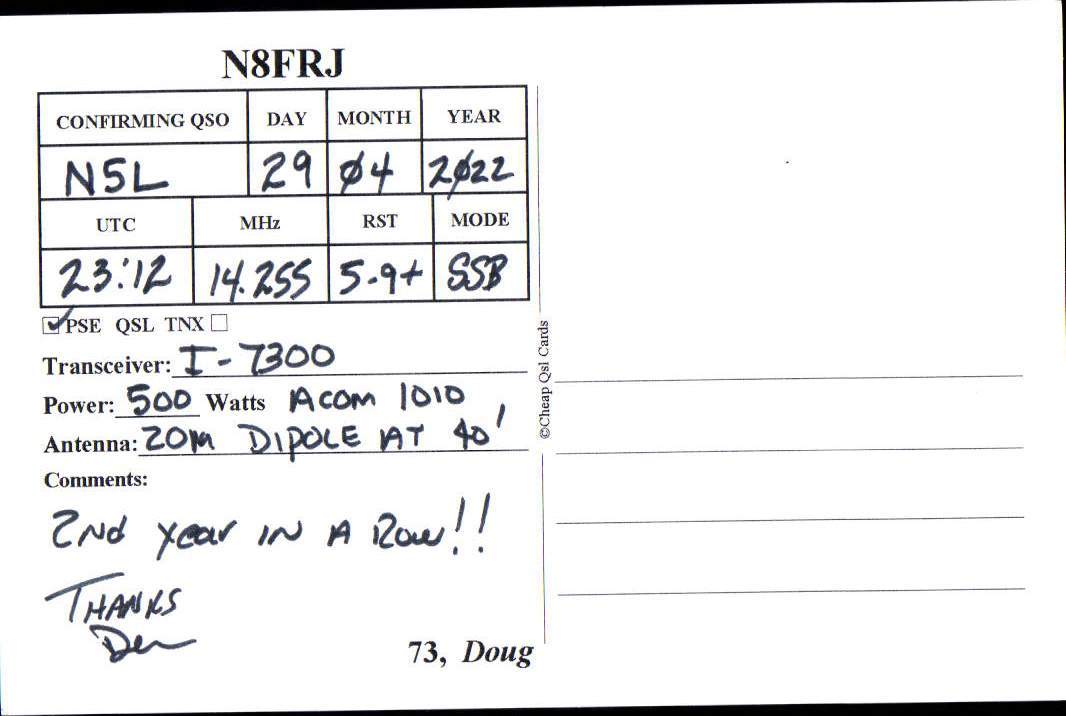 N8FRJ
CONFIRMING QSO DAY MONTH YEAR
N5L 29 Ø4 2Ø22
UTC MHz RST MODE
23:12 14.255 5-9+ SSB
PSE QSL TNX
Transceiver: I-7300
Power: 500 Watts Acom 1010
Antenna: 20M DIPOLE AT 40'
Comments:
2Nd Year IN A Row!!
THANKS
73, Doug
©Cheap Qsl Cards